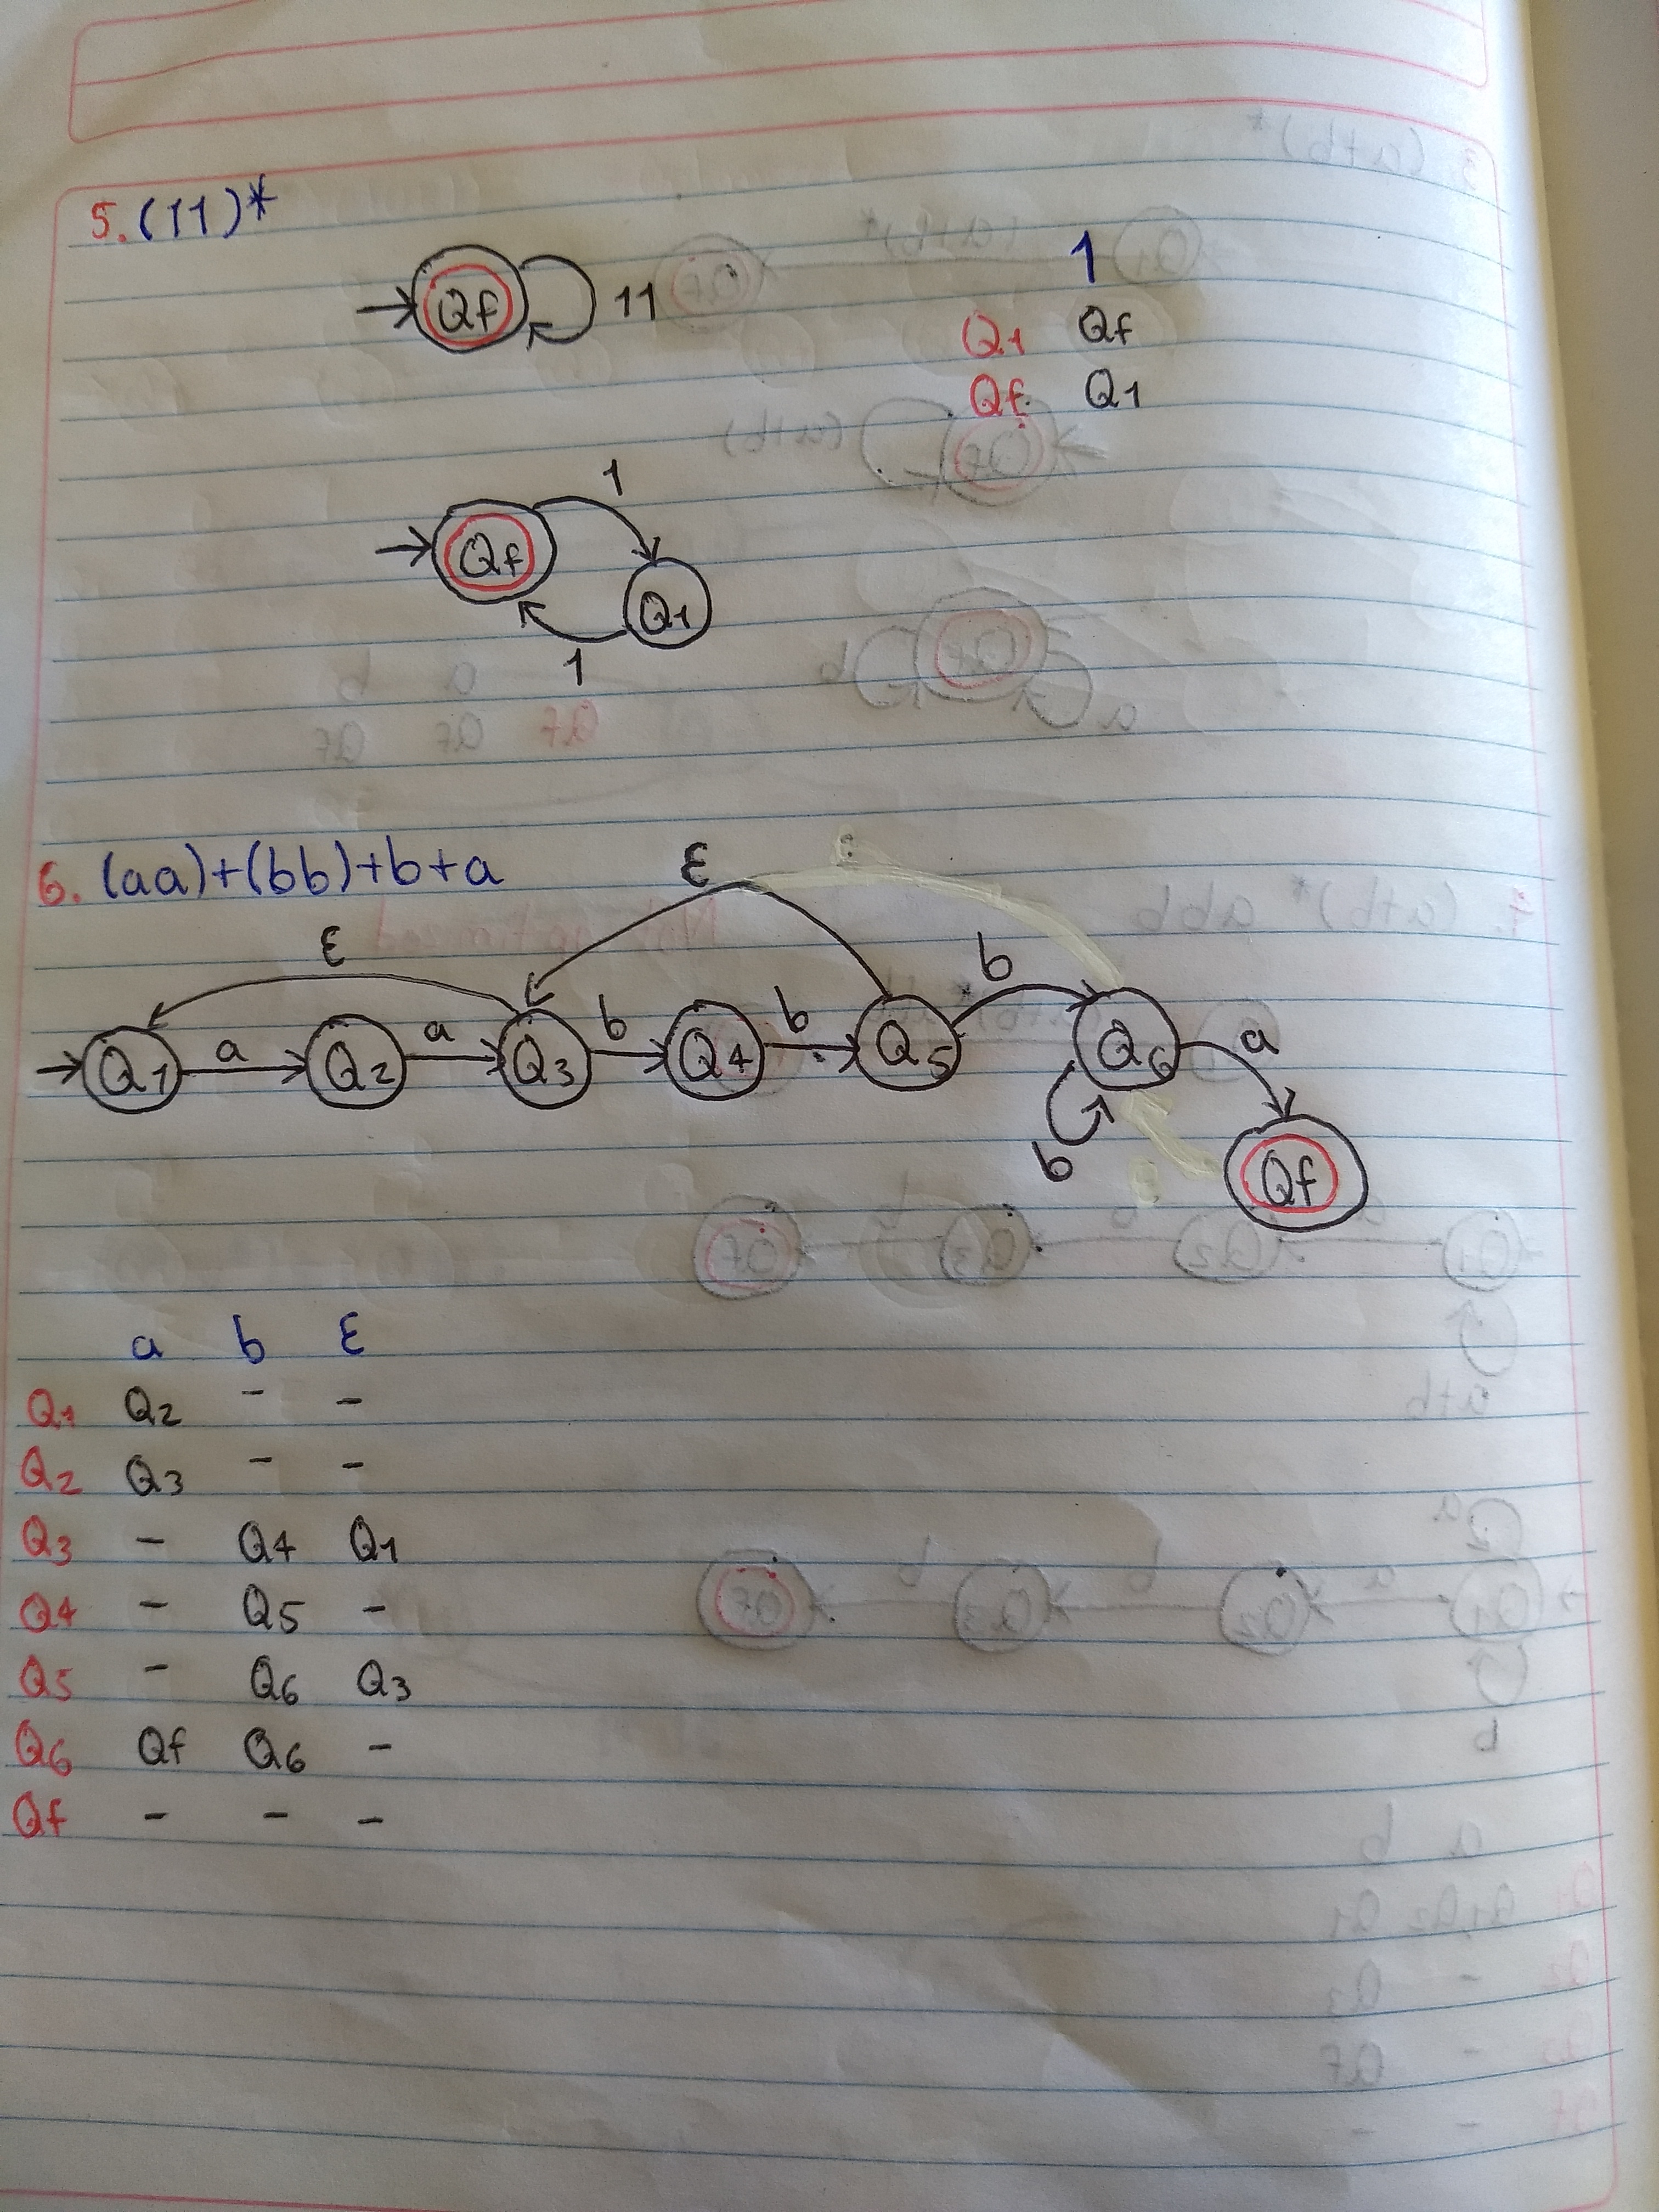 5. (11)*
1
Qf 11
Q1 Qf
Qf Q1
1
Qf
Q1
1
6. (aa)+(bb)+b+a
ε
ε
b
Q1 a Q2 a Q3 b Q4 b Q5 Q6 a
b
Qf
a b ε
Q1 Q2 - -
Q2 Q3 - -
Q3 - Q4 Q1
Q4 - Q5 -
Q5 - Q6 Q3
Q6 Qf Q6 -
Qf - - -